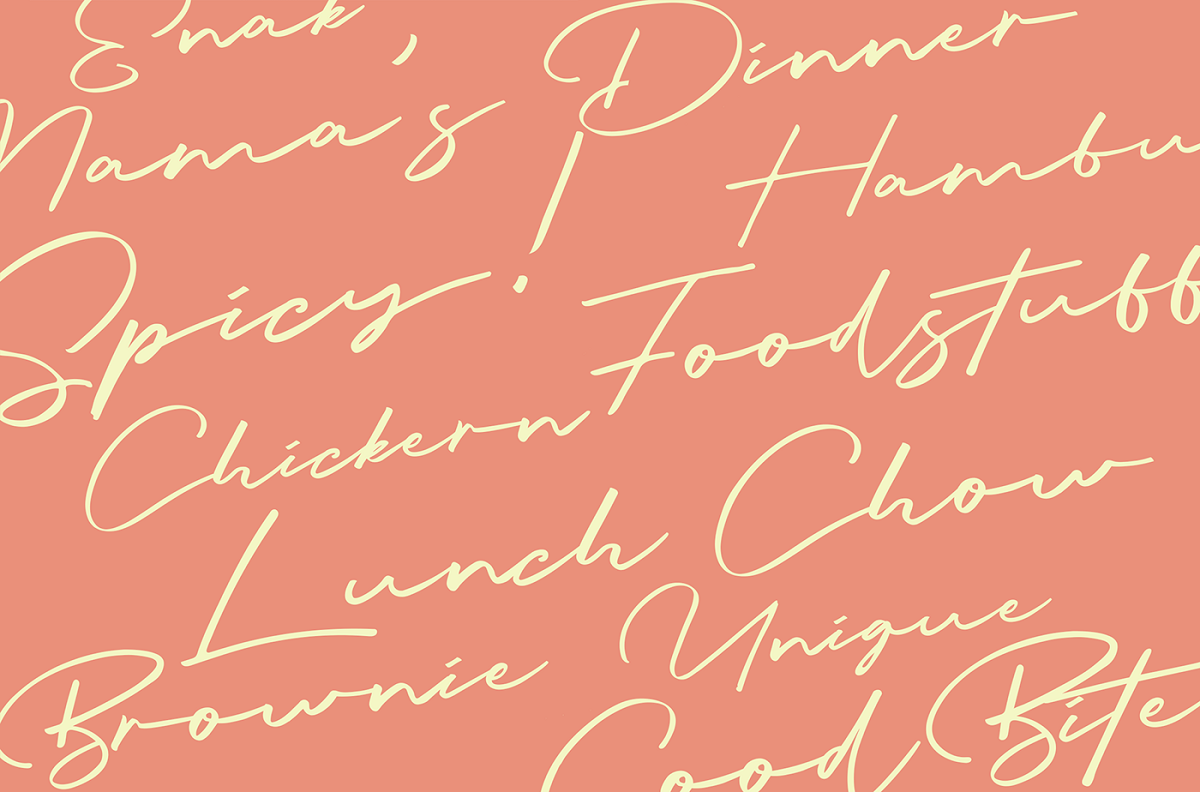 Enak,
Dinner
Mama's
Hambu
Spicy!
Foodstuff
Chickern
Chow
Lunch
Unique
Brownie
Bite
Good